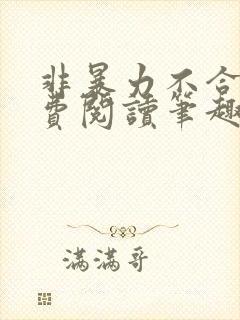 非暴力不合
費閱讀筆趣
滿滿哥